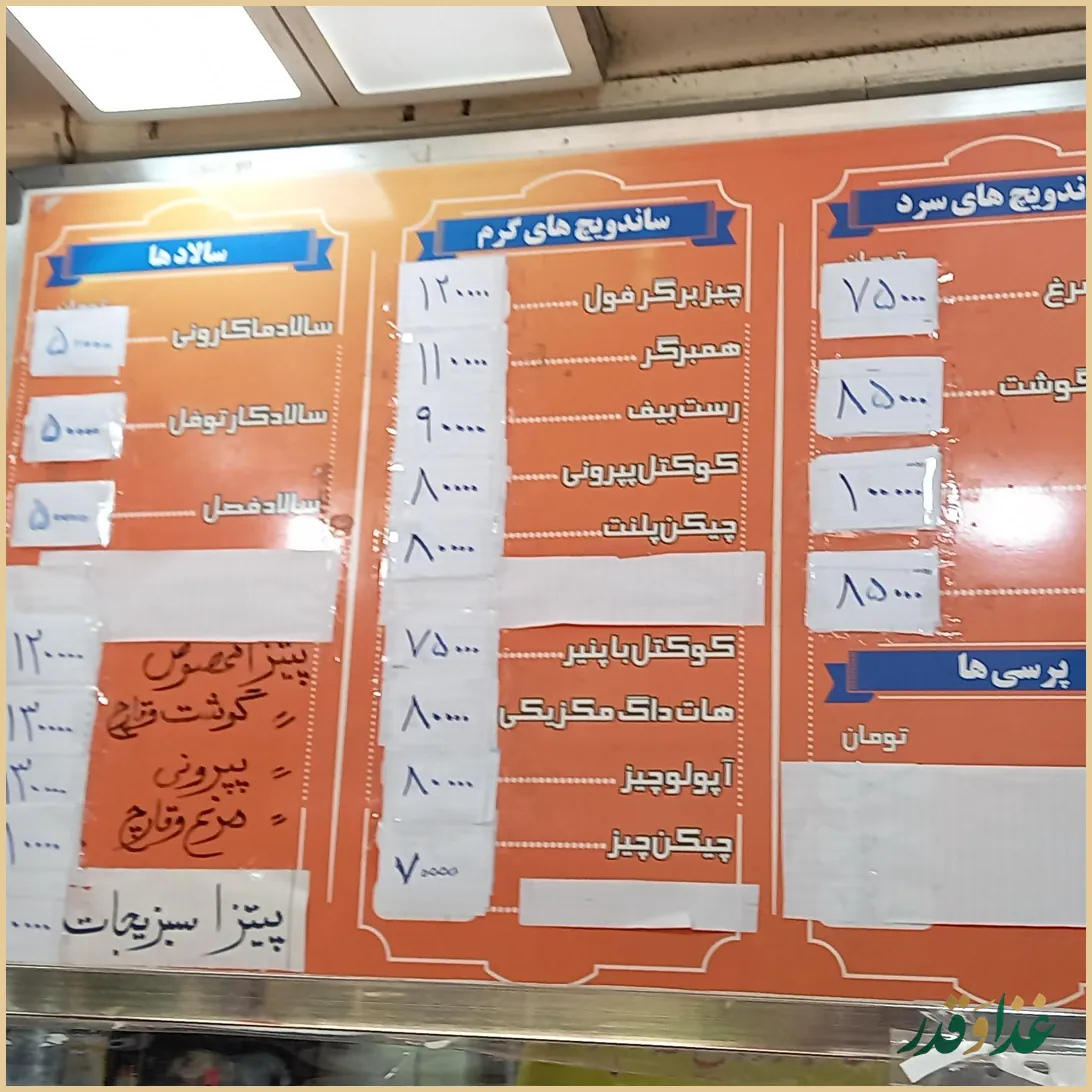 ندویچ های سرد
تومان
رغ ۷۵۰۰۰
گوشت ۸۵۰۰۰
۱۰۰۰۰۰
۸۵۰۰۰
پرسی ها
تومان
ساندویچ های گرم
چیزبرگر فول ۱۲۰۰۰۰
همبرگر ۱۱۰۰۰۰
رست بیف ۹۰۰۰۰
کوکتل پپرونی ۸۰۰۰۰
چیکن پلنت ۸۰۰۰۰
کوکتل با پنیر ۷۵۰۰۰
هات داگ مکزیکی ۸۰۰۰۰
آپولو چیز ۸۰۰۰۰
چیکن چیز ۷۰۰۰۰
سالاد ها
تومان
سالاد ماکارونی ۵۰۰۰۰
سالاد کارتوفل ۵۰۰۰۰
سالاد فصل ۵۰۰۰۰
پیتزا مخصوص ۱۲۰۰۰۰
〃 گوشت قارچ ۱۳۰۰۰۰
〃 پپرونی
〃 مرغ و قارچ
پیتزا سبزیجات
غذا و قدر